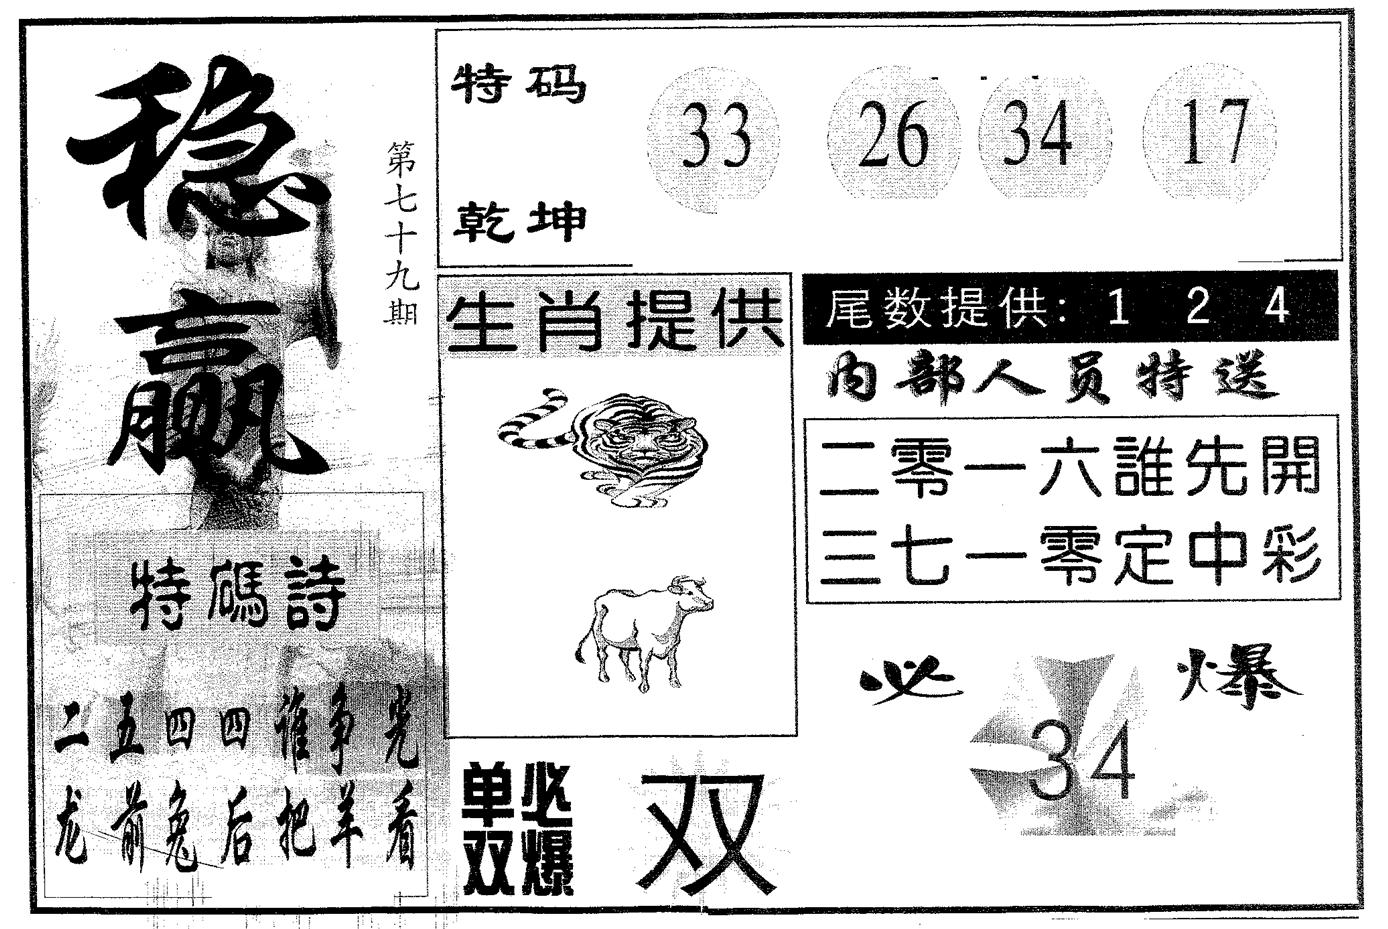 稳赢
第七十九期
特码
乾坤
33 26 34 17
生肖提供
尾数提供: 1 2 4
内部人员特送
二零一六誰先開
三七一零定中彩
特碼詩
二五四四谁争光
龙前兔后把羊看
必爆
34
单双必爆
双